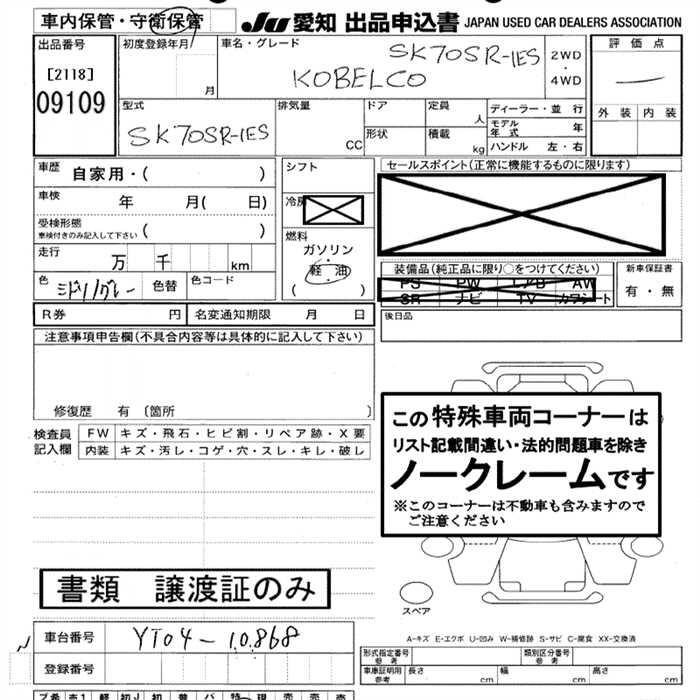 車内保管・守衛保管
JU 愛知 出品申込書 JAPAN USED CAR DEALERS ASSOCIATION
出品番号
[2118]
09109
初度登録年月
月
車名・グレード
SK70SR-1ES
KOBELCO
2WD
・
4WD
評価点
外装 内装
型式
SK70SR-1ES
排気量
CC
ドア
形状
定員
人
積載
kg
ディーラー・並行
モデル年式 年
ハンドル 左・右
車歴 自家用・( )
車検 年 月( 日)
受検形態
車検付きのみ記入して下さい ( )
走行 万 千 km
色 ミドリ/グレー 色替 色コード
シフト
冷房
燃料
ガソリン
・
軽・油
( )
セールスポイント(正常に機能するものに限ります)
装備品(純正品に限り○をつけてください)
PS PW エアB AW
SR ナビ TV カワシート
新車保証書
有・無
R券 円 名変通知期限 月 日
後日品
注意事項申告欄(不具合内容等は具体的に記入して下さい)
修復歴 有 〔箇所 〕
検査員
記入欄
FW キズ・飛石・ヒビ割・リペア跡・X要
内装 キズ・汚レ・コゲ・穴・スレ・キレ・破レ
この特殊車両コーナーは
リスト記載間違い・法的問題車を除き
ノークレームです
※このコーナーは不動車も含みますので
ご注意ください
書類 譲渡証のみ
スペア
A-キズ E-エクボ U-凹み W-補修跡 S-サビ C-腐食 XX-交換済
車台番号 YT04-10868
登録番号
形式指定番号
参考
類別区分番号
参考
車庫証明用
参考
長さ cm 幅 cm 高さ cm